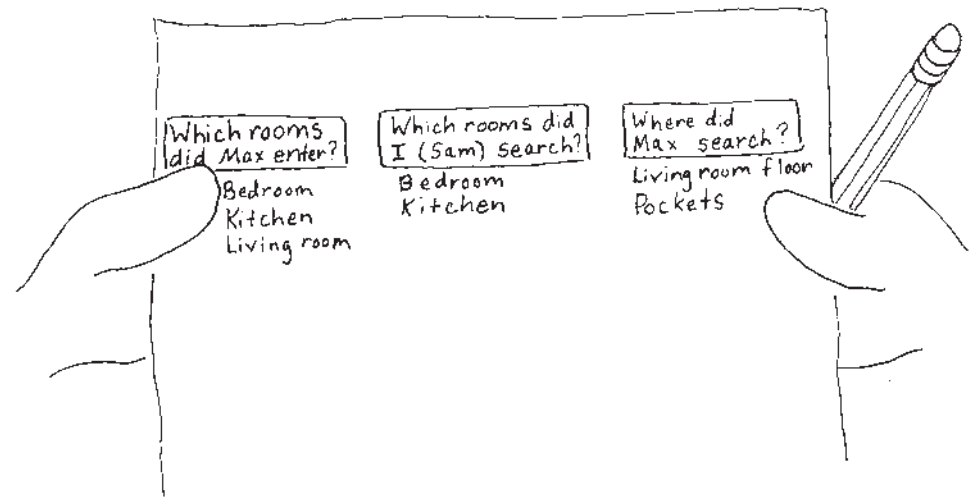 Which rooms
did Max enter?
Bedroom
Kitchen
Living room
Which rooms did
I (Sam) search?
Bedroom
Kitchen
Where did
Max search?
Living room floor
Pockets